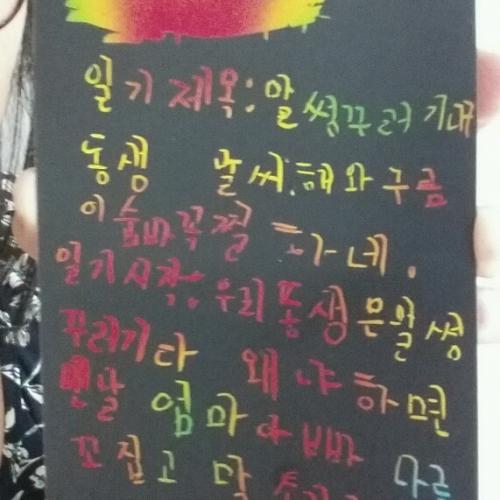 일기 제목: 말썽꾸러기 내
동생 날씨: 해와 구름
이 숨바꼭질 하네.
일기시작: 우리 동생은 말썽
꾸러기다 왜냐하면
맨날 엄마 아빠
꼬집고 막